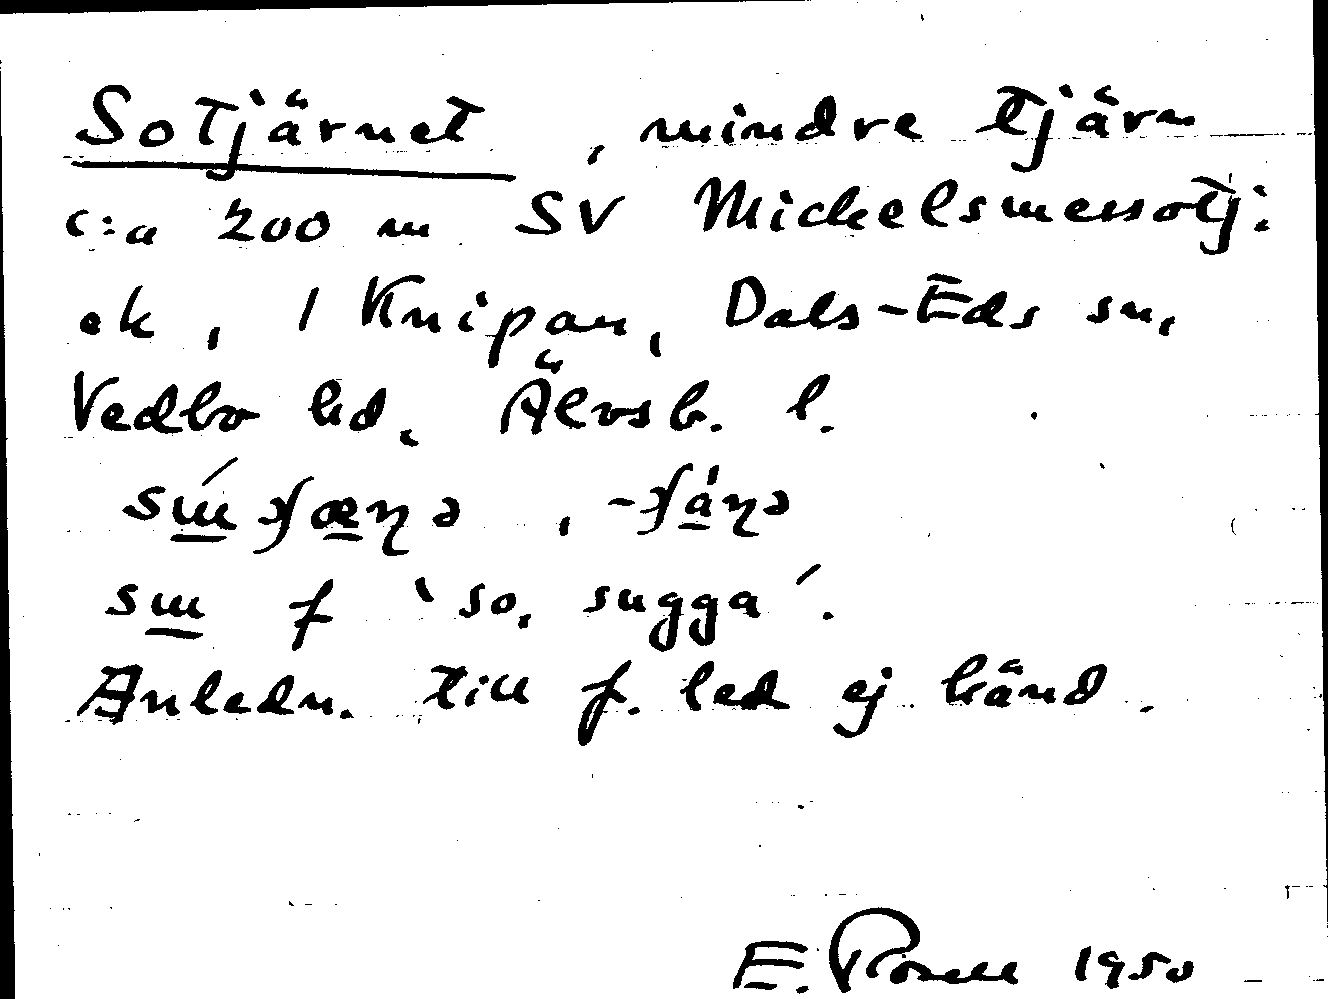 Sotjärnet, mindre tjärn
c:a 200 m SV Mickelsmessotj:
ek, 1 Knipan, Dals-Eds sn,
Vedbo hd, Älvsb. l.
f 'so, sugga'.
Anledn. till f. led ej känd.
E. 1950